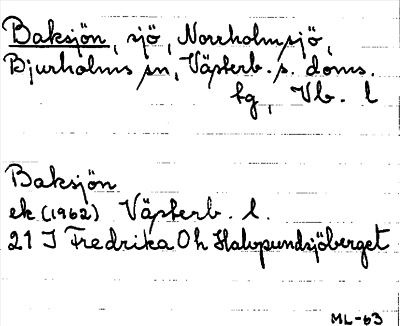 Baksjön, sjö, Norrholmsjö,
Bjurholms sn, Västerb. s. doms.
tg, Vb. l
Baksjön
ek (1962) Västerb. l.
21 J Fredrika 0h Halvpundsjöberget
ML-63